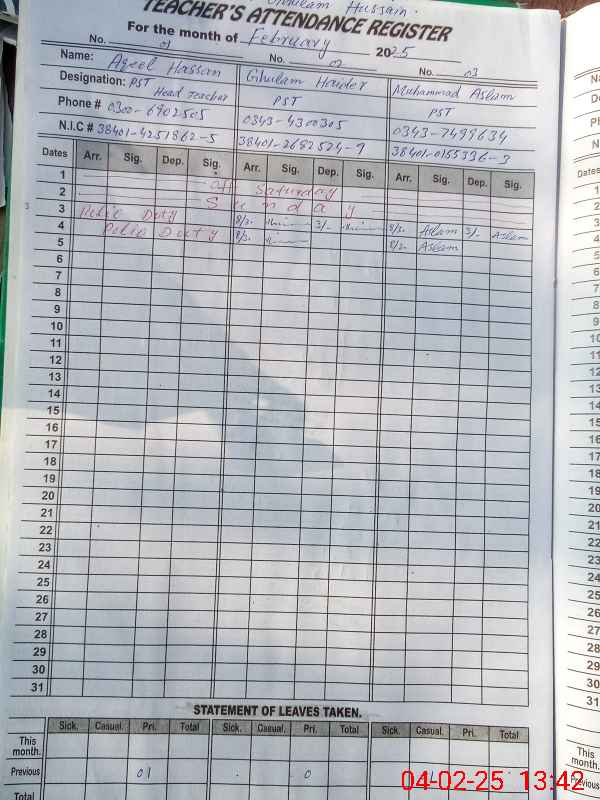 Ghulam Hussain.
TEACHER'S ATTENDANCE REGISTER
For the month of February 2025
No. 01 No. 02 No. 03
Name: Aqeel Hassan Ghulam Haider Muhammad Aslam
Designation: PST Head Teacher PST PST
Phone # 0300-6902505 0343-4300305 0343-7499634
N.I.C # 38401-4251862-5 38401-2692524-9 38401-0155336-3
Dates Arr. Sig. Dep. Sig. Arr. Sig. Dep. Sig. Arr. Sig. Dep. Sig.
1 off Saturday
2 Sunday
3 Polio Duty 8/2. 3/- 8/2. Aslam 3/- Aslam
4 Polio Duty 8/2. 8/2. Aslam
5
6
7
8
9
10
11
12
13
14
15
16
17
18
19
20
21
22
23
24
25
26
27
28
29
30
31
STATEMENT OF LEAVES TAKEN.
Sick. Casual. Pri. Total Sick. Casual. Pri. Total Sick. Casual. Pri. Total
This month.
Previous 01 0
Total
04-02-25 13:42